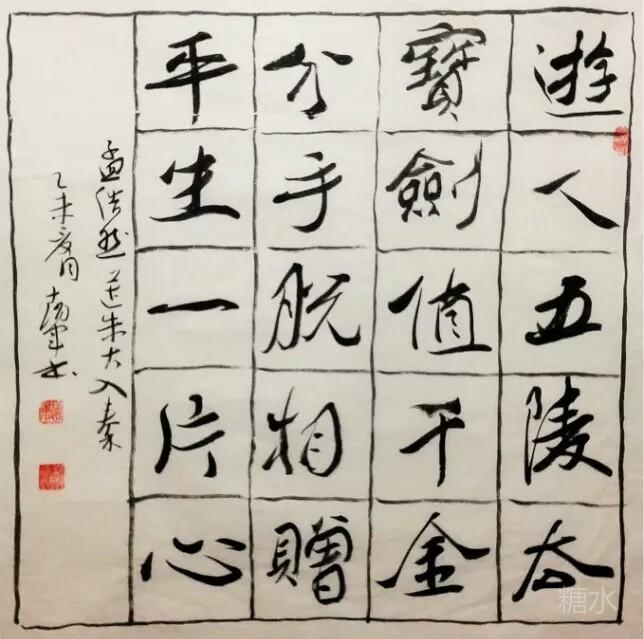 遊人五陵去
寶劍值千金
分手脱相贈
平生一片心
孟浩然 送朱大入秦
乙未夏月 书
糖水